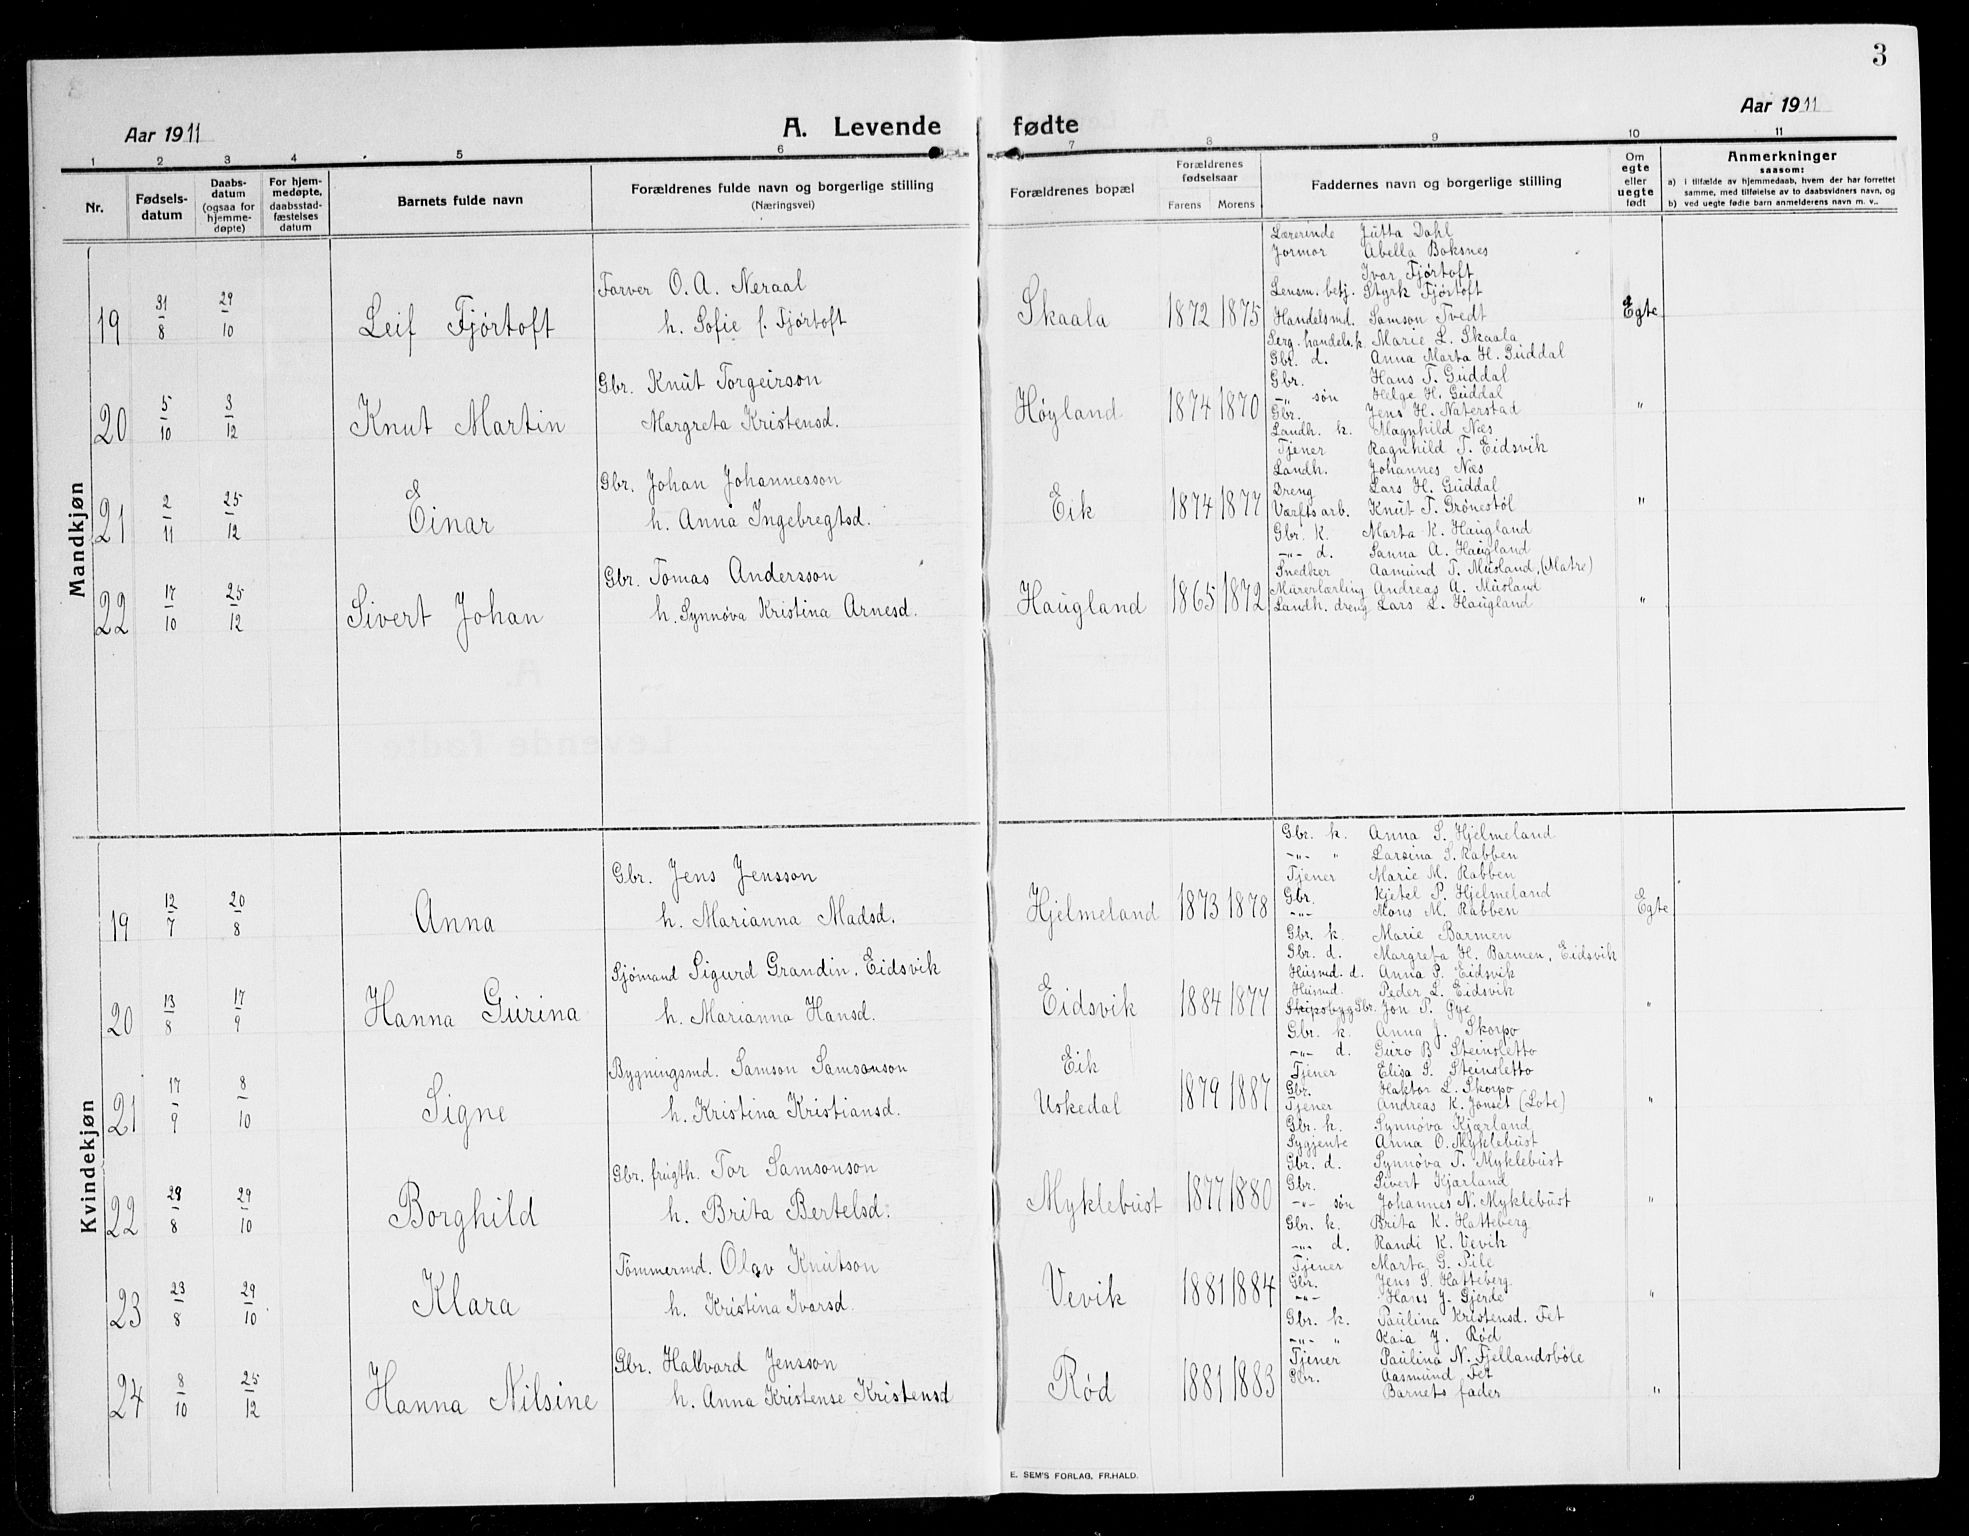 3
Aar 1911
A. Levende fødte
Aar 1911
1 2 3 4 5 6 7 8 9 10 11
Nr.
Fødsels-
datum
Daabs-
datum
(ogsaa for
hjemme-
døpte)
For hjem-
medøpte,
daabsstad-
fæstelses
datum
Barnets fulde navn
Forældrenes fulde navn og borgerlige stilling
(Næringsvei)
Forældrenes bopæl
Forældrenes
fødselsaar
Farens Morens
Faddernes navn og borgerlige stilling
Om
egte
eller
uegte
født
Anmerkninger
saasom:
a) i tilfælde av hjemmedaab, hvem der har forrettet
samme, med tilføielse av to daabsvidners navn, og
b) ved uegte fødte barn anmelderens navn m. v..
Mandkjøn
19 31/8 29/10 Leif Fjørtoft
Farver O. A. Neraal
h. Sofie f. Fjørtoft
Skaala 1872 1875
Lærerinde Jutta Dahl
Jormor Abella Boksnes
Ivar Fjørtoft
Lensm. betj. Styrk Fjørtoft
Handelsmd. Samson Tvedt
Egte
20 5/10 3/12 Knut Martin
Gbr. Knut Torgeirson
Margreta Kristensd.
Høyland 1874 1870
Serg. handels. k. Marie L. Skaala
Gbr. d. Anna Marta H. Guddal
Gbr. Hans T. Guddal
-"- søn Helge H. Guddal
Gbr. Jens H. Naterstad
"
21 2/11 25/12 Einar
Gbr. Johan Johannesson
h. Anna Ingebregtsd.
Eik 1874 1877
Landh. k. Magnhild Næs
Tjener Ragnhild T. Eidsvik
Landh. Johannes Næs
Dreng Lars H. Guddal
Værftsarb. Knut T. Grønestøl
"
22 17/10 25/12 Sivert Johan
Gbr. Tomas Andersson
h. Synnøva Kristina Arnesd.
Haugland 1865 1872
Gbr. K. Marta K. Haugland
-"- d. Sanna A. Haugland
Snedker Aamund T. Musland, (Matre)
Murerlærling Andreas A. Musland
Landh. dreng Lars L. Haugland
"
Kvindekjøn
19 12/7 20/8 Anna
Gbr. Jens Jensson
h. Marianna Madsd.
Hjelmeland 1873 1878
Gbr. k. Anna S. Hjelmeland
-"- " Larsina S. Rabben
Tjener Marie M. Rabben
Gbr. Kjetel P. Hjelmeland
-"- Mons M. Rabben
Egte
20 13/8 17/9 Hanna Gurina
Sjømand Sigurd Grandin, Eidsvik
h. Marianna Hansd.
Eidsvik 1884 1877
Gbr. k. Marie Barmen
Gbr. d. Margreta H. Barmen, Eidsvik
Husmd. d. Anna P. Eidsvik
Husmd. Peder L. Eidsvik
Skipsbyg Gbr. Jon P. Øye
"
21 17/9 8/10 Signe
Bygningsmd. Samson Samsonson
h. Kristina Kristiansd.
Eik
Uskedal 1879 1887
Gbr. k. Anna J. Skorpo
-"- d. Guro B. Steinsletto
Tjener Elisa S. Steinsletto
Gbr. Haktor L. Skorpo
Tjener Andreas K. Jonset (Lote)
"
22 29/8 29/10 Borghild
Gbr. frugth. Tor Samsonson
h. Brita Bertelsd.
Myklebust 1877 1880
Gbr. k. Synnøva Kjærland
Sygjente Anna O. Myklebust
Gbr. d. Synnøva T. Myklebust
Gbr. Sivert Kjærland
-"- søn Johannes N. Myklebust
"
23 23/8 29/10 Klara
Tømmermd. Olav Knutson
h. Kristina Ivarsd.
Vevik 1881 1884
Gbr. k. Brita K. Hatteberg
-"- d. Randi K. Vevik
Tjener Marta G. Pile
Gbr. Jens S. Hatteberg
-"- Hans J. Gjerde
"
24 8/10 25/12 Hanna Nilsine
Gbr. Halvard Jensson
h. Anna Kristense Kristensd
Rød 1881 1883
Gbr. k. Paulina Kristensd. Fet
-"- " Kaia J. Rød
Tjener Paulina N. Fjellandsbøle
Gbr. Aasmund Fet
Barnets fader
"
E. SEM'S FORLAG, FR.HALD.